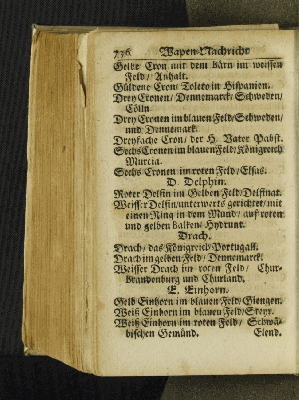 736. Wapen-Nachricht
Gelbe Cron mit dem Bärn im weissen
Feld/ Anhalt.
Güldene Cron/ Toleto in Hispanien.
Drey Cronen/ Dennemarck/ Schweden/
Cölln.
Drey Cronen im blauen Feld/ Schweden/
und Dennemark.
Dreyfache Cron/ der H. Vater Pabst.
Sechs Cronen im blauen Feld/ Königreich
Murcia.
Sechs Cronen im roten Feld/ Elsas.
D. Delphin.
Roter Delfin im Gelben Feld/ Delfinat.
Weisser Delfin/ unterwerts gerichtet/ mit
einen Ring in dem Mund/ auf roten
und gelben Balken/ Hydrunt.
Drach.
Drach/ das Königreich Portugall.
Drach im gelben Feld/ Dennemarck.
Weisser Drach im roten Feld/ Chur-
Brandenburg und Churland.
E. Einhorn.
Gelb Einhorn im blauen Feld/ Giongen.
Weiß Einhorn im blauen Feld/ Steyr.
Weiß Einhorn im roten Feld/ Schwä-
bischen Gemünd.
Elend.